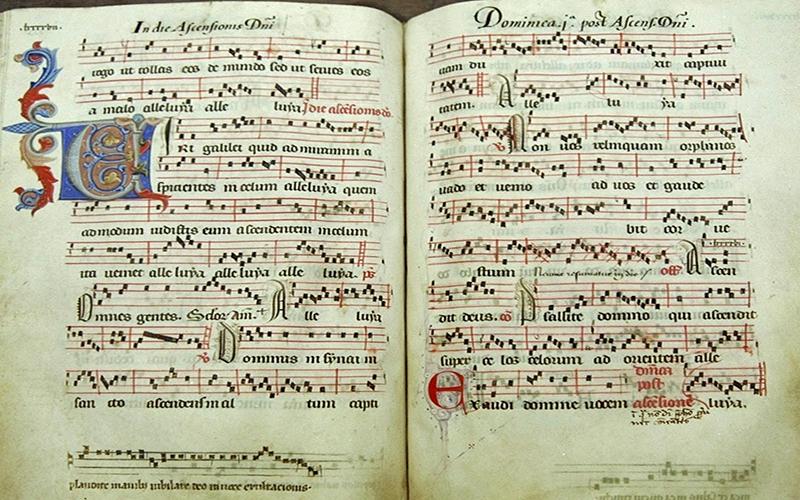 In die Ascensionis Dñi
rogo ut tollas eos de mundo sed ut serves eos
a malo alleluya alle luya. In die ascēsionis dñ.
Viri galilei quid admiramini a
spicientes in celum alleluya quem
admodum vidistis eum ascendentem in celum
ita veniet alle luya alle luya alle luya. ps̄.
Omnes gentes. Seclor. Am̄. Alle luya
Dominus in synai in
san cto ascendens in al tum capti
plaudite manib; iubilate deo in voce exultacionis.
Dominica .j. post Ascens. Dñi.
vam du xit captivi
tatem. Alle lu ya
Non vos relinquam orphanos
vado et venio ad vos et gaude
bit cor ve
strum off. Ascen
dit deus. cō Psallite domino qui ascendit
super ce los celorum ad orientem alle
dm̄ca
post
Exaudi domine vocem ascēsionē luya.